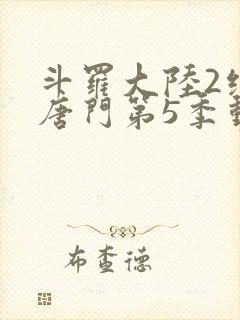 斗羅大陸2
唐門第5季
布查德